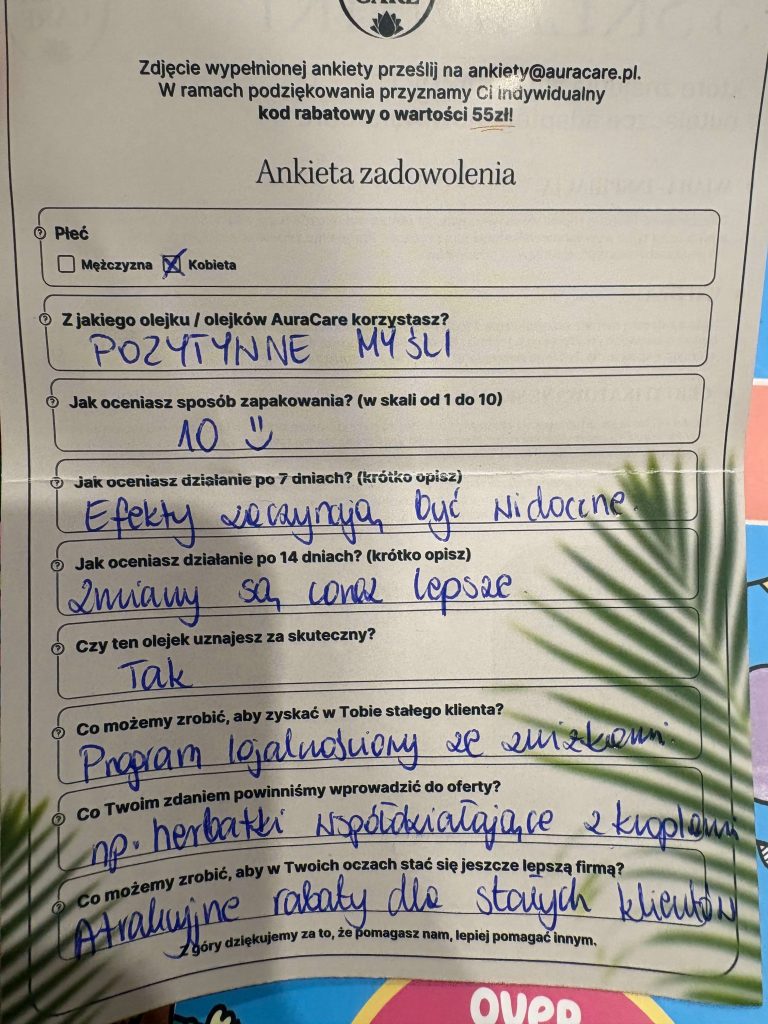 CARE
Zdjęcie wypełnionej ankiety prześlij na ankiety@auracare.pl.
W ramach podziękowania przyznamy Ci indywidualny
kod rabatowy o wartości 55zł!
Ankieta zadowolenia
Płeć
Mężczyzna Kobieta
Z jakiego olejku / olejków AuraCare korzystasz?
POZYTYWNE MYŚLI
Jak oceniasz sposób zapakowania? (w skali od 1 do 10)
10
Jak oceniasz działanie po 7 dniach? (krótko opisz)
Efekty zaczynają być widoczne.
Jak oceniasz działanie po 14 dniach? (krótko opisz)
Zmiany są coraz lepsze
Czy ten olejek uznajesz za skuteczny?
Tak
Co możemy zrobić, aby zyskać w Tobie stałego klienta?
Program lojalnościowy ze zniżkami.
Co Twoim zdaniem powinniśmy wprowadzić do oferty?
np. herbatki współdziałające z kroplami
Co możemy zrobić, aby w Twoich oczach stać się jeszcze lepszą firmą?
Atrakcyjne rabaty dla stałych klientów
Z góry dziękujemy za to, że pomagasz nam, lepiej pomagać innym.
OVER